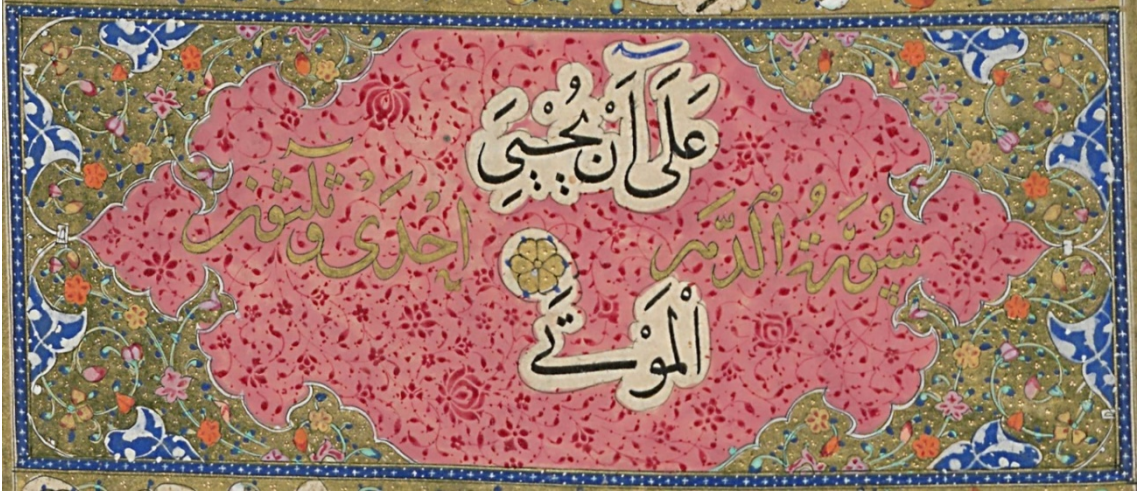 عَلَىٰٓ أَنْ يُحْيِيَ
سُورَةُ الدَّهْرِ إِحْدَى وَثَلٰثُونَ
الْمَوْتَى